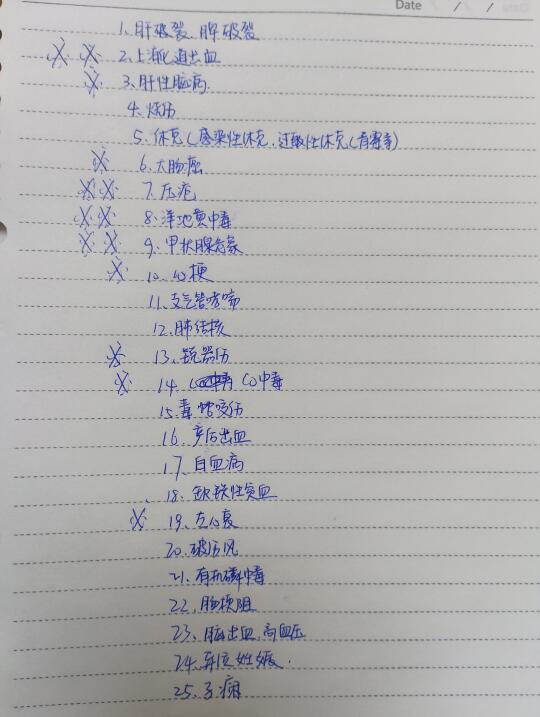 Date / /
1、肝破裂、脾破裂
※ ※ 2、上消化道出血
※ 3、肝性脑病、
4、烧伤
5、休克(感染性休克、过敏性休克(青霉素)
※ 6、大肠癌
※※ 7、压疮
※※ 8、洋地黄中毒
※ ※ 9、甲状腺危象
※ 10、心梗
11、支气管哮喘
12、肺结核
※ 13、锐器伤
※ 14、CO中毒
15、毒蛇咬伤
16、产后出血
17、白血病
18、缺铁性贫血
※ 19、左心衰
20、破伤风
21、有机磷中毒
22、肠梗阻
23、脑出血、高血压
24、异位妊娠、
25、子痫